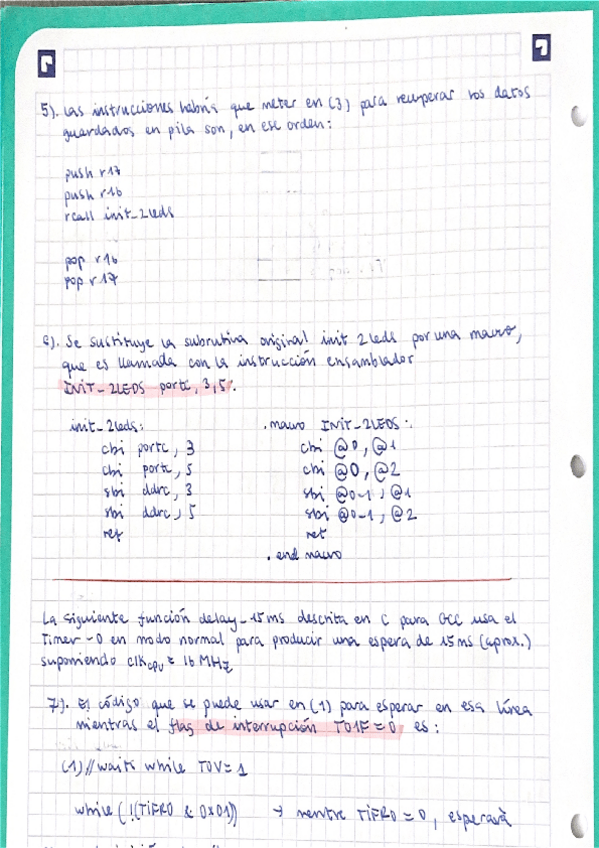 5). Las instrucciones habría que meter en (3) para recuperar los datos
guardados en pila son, en ese orden:
push r17
push r16
rcall init_2leds
pop r16
pop r17
6). Se sustituye la subrutina original init 2 leds por una macro,
que es llamada con la instrucción ensamblador
INIT_2LEDS portc, 3,5.
init_2leds:
cbi portc, 3
cbi portc, 5
sbi ddrc, 3
sbi ddrc, 5
ret
.macro INIT_2LEDS:
cbi @0, @1
cbi @0, @2
sbi @0-1, @1
sbi @0-1, @2
ret
.end macro
La siguiente función delay_15ms descrita en C para GCC usa el
Timer-0 en modo normal para producir una espera de 15ms (aprox.)
suponiendo clkCPU = 16 MHz
7). El código que se puede usar en (1) para esperar en esa línea
mientras el flag de interrupción T01F=0 es:
(1) // waits while TOV=1
while (!(TIFR0 & 0x01)) → mentre TIFR0 = 0, esperará